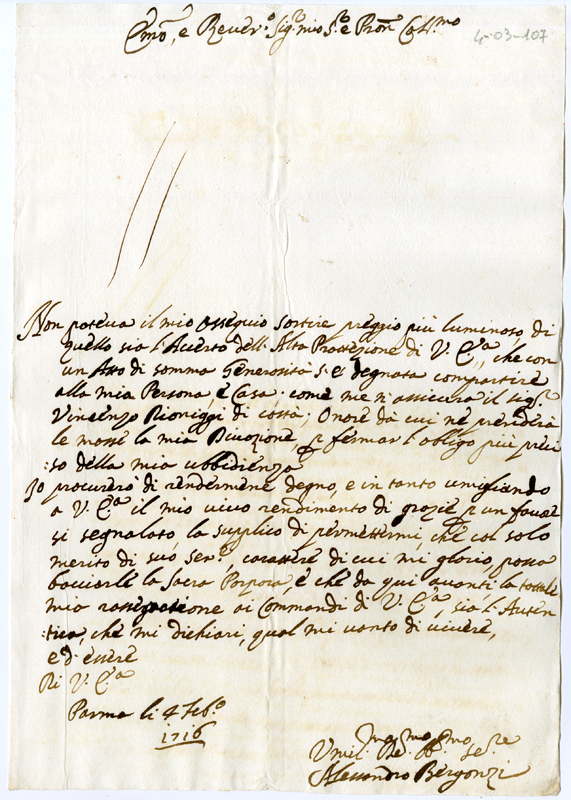 Emo, e Rever.o Sig.r mio S.re e Pron Col.mo
4-03-107
Non poteva il mio ossequio sortire preggio più luminoso, di
quello sia l'Acierto dell'Alta Protezione di V. E.a, che con
un Atto di somma Generosità s'è degnata compartire
alla mia Persona, e Casa: come me n'assicura il Sig.r
Vincenzo Rioniggi di costà; Onore da cui ne prenderà
le mosse la mia Divozione, p fermar l'obligo più preci
:so della mia ubbidienza
Io procurerò di rendermene degno, e in tanto umiliando
a V. E.a il mio vivo rendimento di grazie p un favor
si segnalato, la supplico di permettermi, che col solo
merito di suo Ser.e, carattere di cui mi glorio, possa
bacciarle la Sacra Porpora, e che da qui avanti la totale
mia rassegnatione ai Commandi di V. E.a, sia l'Auten
:tica, che mi dichiari, qual mi vanto di vivere,
ed essere
Di V. E.a
Parma li 4 Feb.o
1716
Umil.mo De.mo Ob.mo Se.re
Alessandro Bergonzi